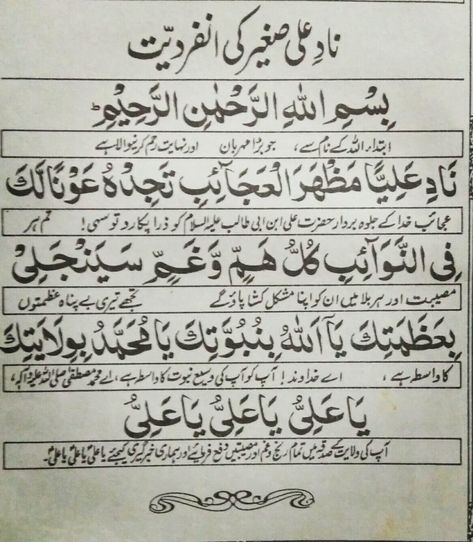 نادِ علی صغیر کی انفردیت
بِسْمِ اللهِ الرَّحْمٰنِ الرَّحِيْمِ ط
ابتداء اللہ کے نام سے، جو بڑا مہربان اور نہایت رحم کرنیوالا ہے
نَادِ عَلِيًّا مَظْهَرَ الْعَجَآئِبِ تَجِدْهُ عَوْنًا لَّكَ
عجائب خدا کے جلوہ بردار حضرت علی ابن ابی طالب علیہ السلام کو ذرا پکارو تو سہی! تم ہر
فِى النَّوَآئِبِ كُلُّ هَمٍّ وَّغَمٍّ سَيَنْجَلِىْ
مصیبت اور ہر بلا میں ان کو اپنا مشکل کشا پاؤ گے تجھے تیری بے پناہ عظمتوں
بِعَظَمَتِكَ يَآ اَللهُ بِنُبُوَّتِكَ يَا مُحَمَّدُ بِوِلَايَتِكَ
کا واسطہ ہے، اے خداوند! آپ کو آپ کی وسیع نبوت کا واسطہ ہے، اے محمد مصطفٰی صلی اللہ علیہ وآلہ،
يَا عَلِىُّ يَا عَلِىُّ يَا عَلِىُّ
آپ کی ولایت کے صدقہ میں تمام رنج و غم اور مصیبتیں دفع فرمائیے اور ہماری خبر گیری کیجئے یا علیؑ یا علیؑ یا علیؑ